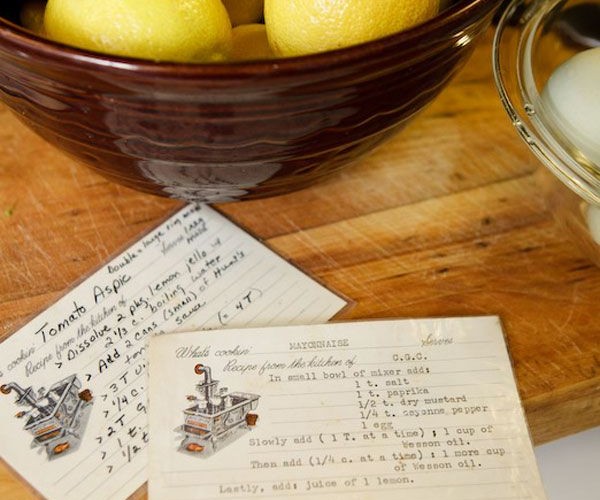 Double = large ring mold
Tomato Aspic Serves
cookin'
Recipe from the kitchen of
> Dissolve 2 pkg. lemon jello in
2 1/3 c. boiling water
> Add 2 cans (small) of Hunt's
sauce (= 4 T)
> 3 T
> 1/4 c.
> 2 T
> 1 t.
> 1/2 t
What's cookin' MAYONNAISE Serves
Recipe from the kitchen of C.G.C.
In small bowl of mixer add:
1 t. salt
1 t. paprika
1/2 t. dry mustard
1/4 t. cayenne pepper
1 egg
Slowly add ( 1 T. at a time) ; 1 cup of
Wesson oil.
Then add (1/4 c. at a time) ; 1 more cup
of Wesson oil.
Lastly, add; juice of 1 lemon.